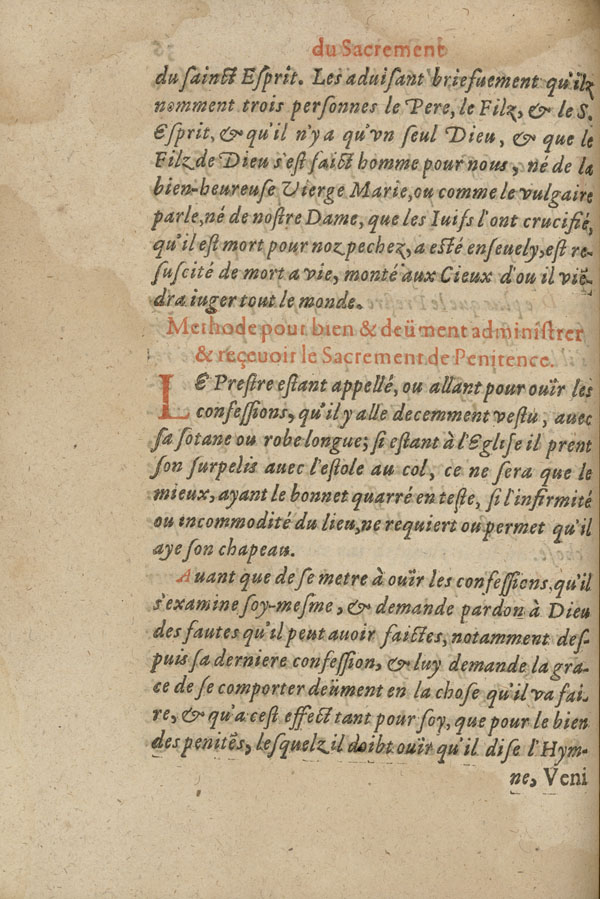 du Sacrement
du sainct Esprit. Les aduisant briefuement qu'ilz
nomment trois personnes le Pere, le Filz, & le S.
Esprit, & qu'il n'y a qu'vn seul Dieu, & que le
Filz de Dieu s'est faict homme pour nous, né de la
bien-heureuse Vierge Marie, ou comme le vulgaire
parle, né de nostre Dame, que les Iuifs l'ont crucifié,
qu'il est mort pour noz pechez, a esté enseuely, est re-
suscité de mort a vie, monté aux Cieux d'ou il viē-
dra iuger tout le monde.
Methode pour bien & deüment administrer
& reçeuoir le Sacrement de Penitence.
LE Prestre estant appellé, ou allant pour ouïr les
confessions, qu'il y alle decemment vestu, auec
sa sotane ou robe longue; si estant à l'Eglise il prent
son surpelis auec l'estole au col, ce ne sera que le
mieux, ayant le bonnet quarré en teste, si l'infirmité
ou incommodité du lieu, ne requiert ou permet qu'il
aye son chapeau.
Auant que de se metre à ouïr les confessions, qu'il
s'examine soy-mesme, & demande pardon à Dieu
des fautes qu'il peut auoir faictes, notamment des-
puis sa derniere confession, & luy demande la gra-
ce de se comporter deüment en la chose qu'il va fai-
re, & qu'a cest effect tant pour soy, que pour le bien
des penitēs, lesquelz il doibt ouïr qu'il dise l'Hym-
ne, Veni